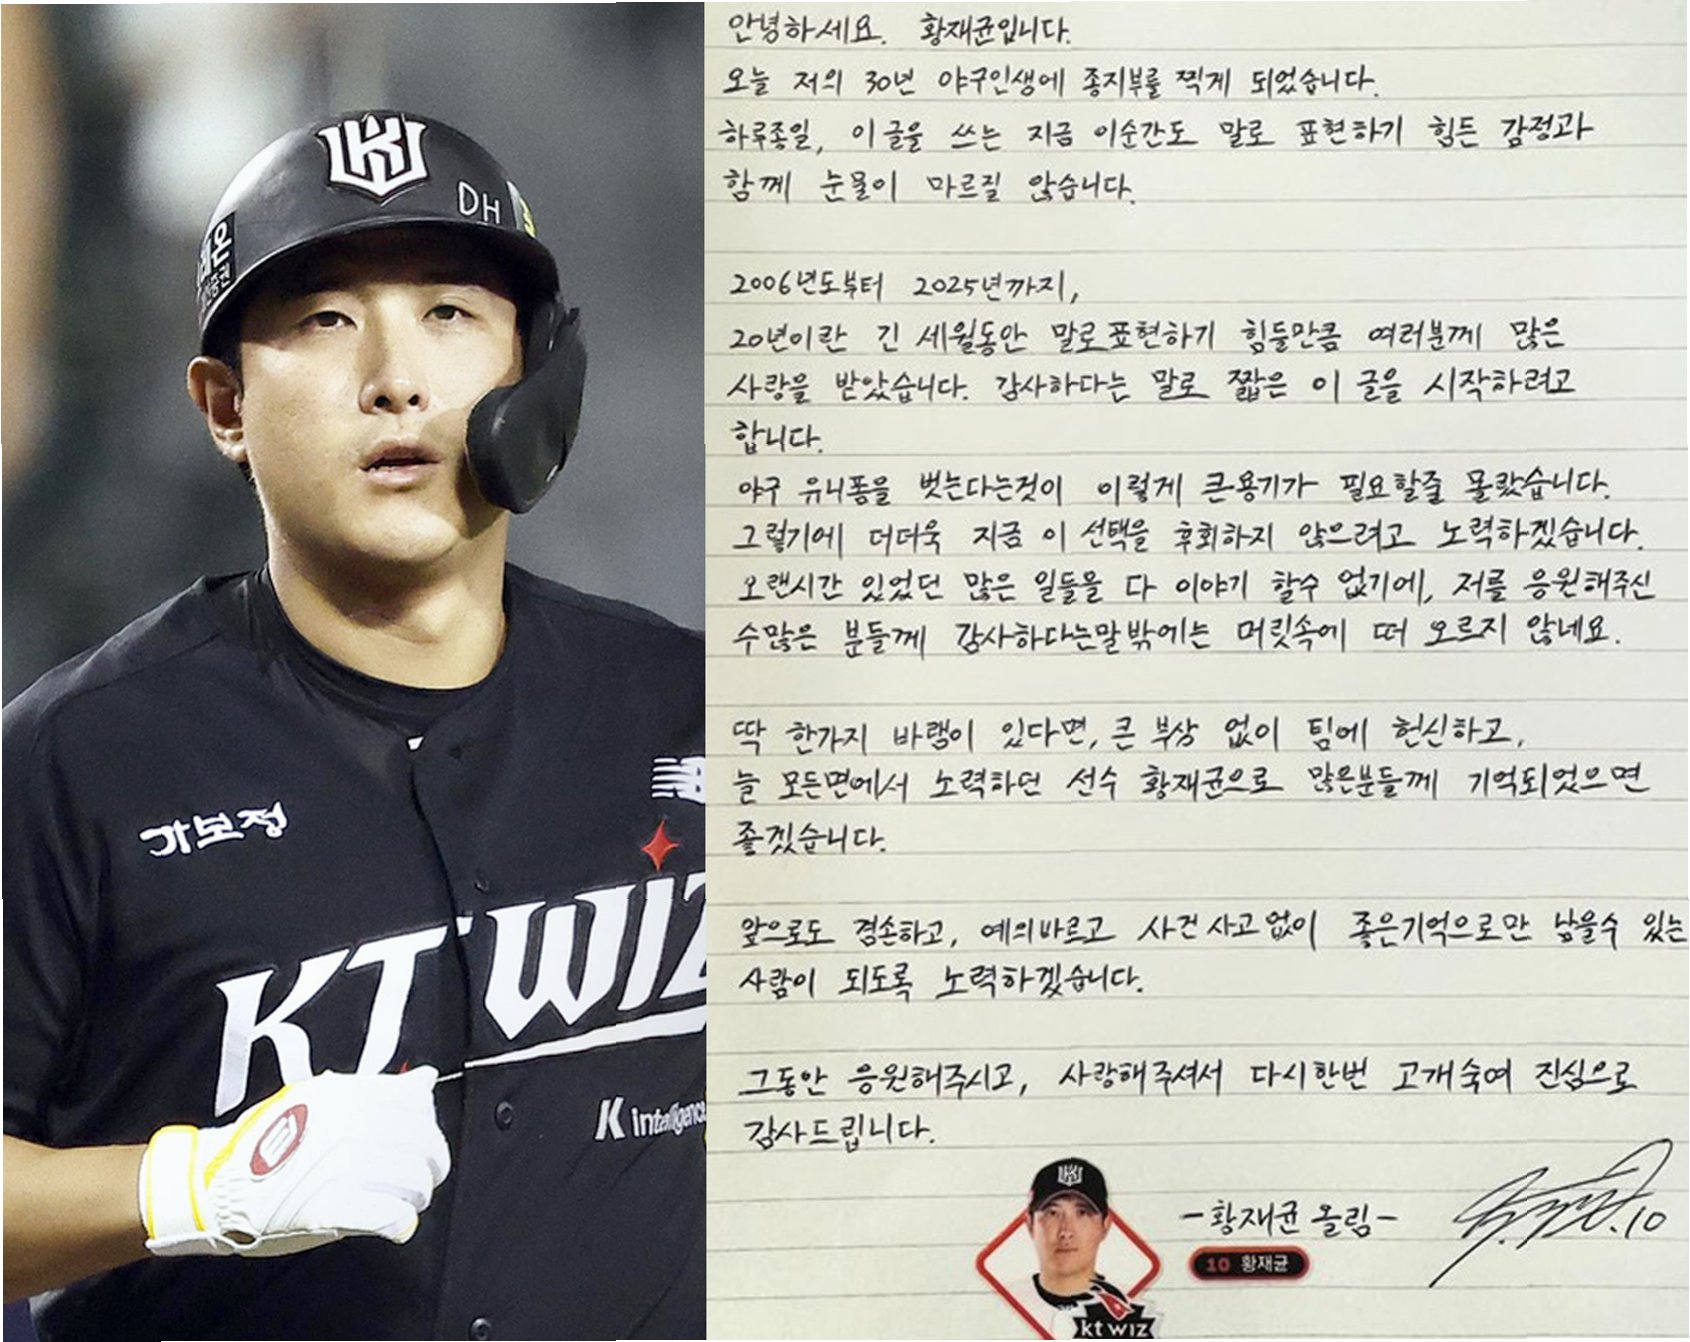 DH
레온
증권
가보정
KT WIZ
K intelligence
안녕하세요. 황재균입니다.
오늘 저의 30년 야구인생에 종지부를 찍게 되었습니다.
하루종일, 이 글을 쓰는 지금 이순간도 말로 표현하기 힘든 감정과
함께 눈물이 마르질 않습니다.
2006년도부터 2025년까지,
20년이란 긴 세월동안 말로표현하기 힘들만큼 여러분께 많은
사랑을 받았습니다. 감사하다는 말로 짧은 이 글을 시작하려고
합니다.
야구 유니폼을 벗는다는것이 이렇게 큰용기가 필요할줄 몰랐습니다.
그렇기에 더더욱 지금 이 선택을 후회하지 않으려고 노력하겠습니다.
오랜시간 있었던 많은 일들을 다 이야기 할수 없기에, 저를 응원해주신
수많은 분들께 감사하다는말밖에는 머릿속에 떠 오르지 않네요.
딱 한가지 바램이 있다면, 큰 부상 없이 팀에 헌신하고,
늘 모든면에서 노력하던 선수 황재균으로 많은분들께 기억되었으면
좋겠습니다.
앞으로도 겸손하고, 예의바르고 사건사고없이 좋은기억으로만 남을수 있는
사람이 되도록 노력하겠습니다.
그동안 응원해주시고, 사랑해주셔서 다시한번 고개숙여 진심으로
감사드립니다.
-황재균 올림-
.10
10 황재균
kt wiz